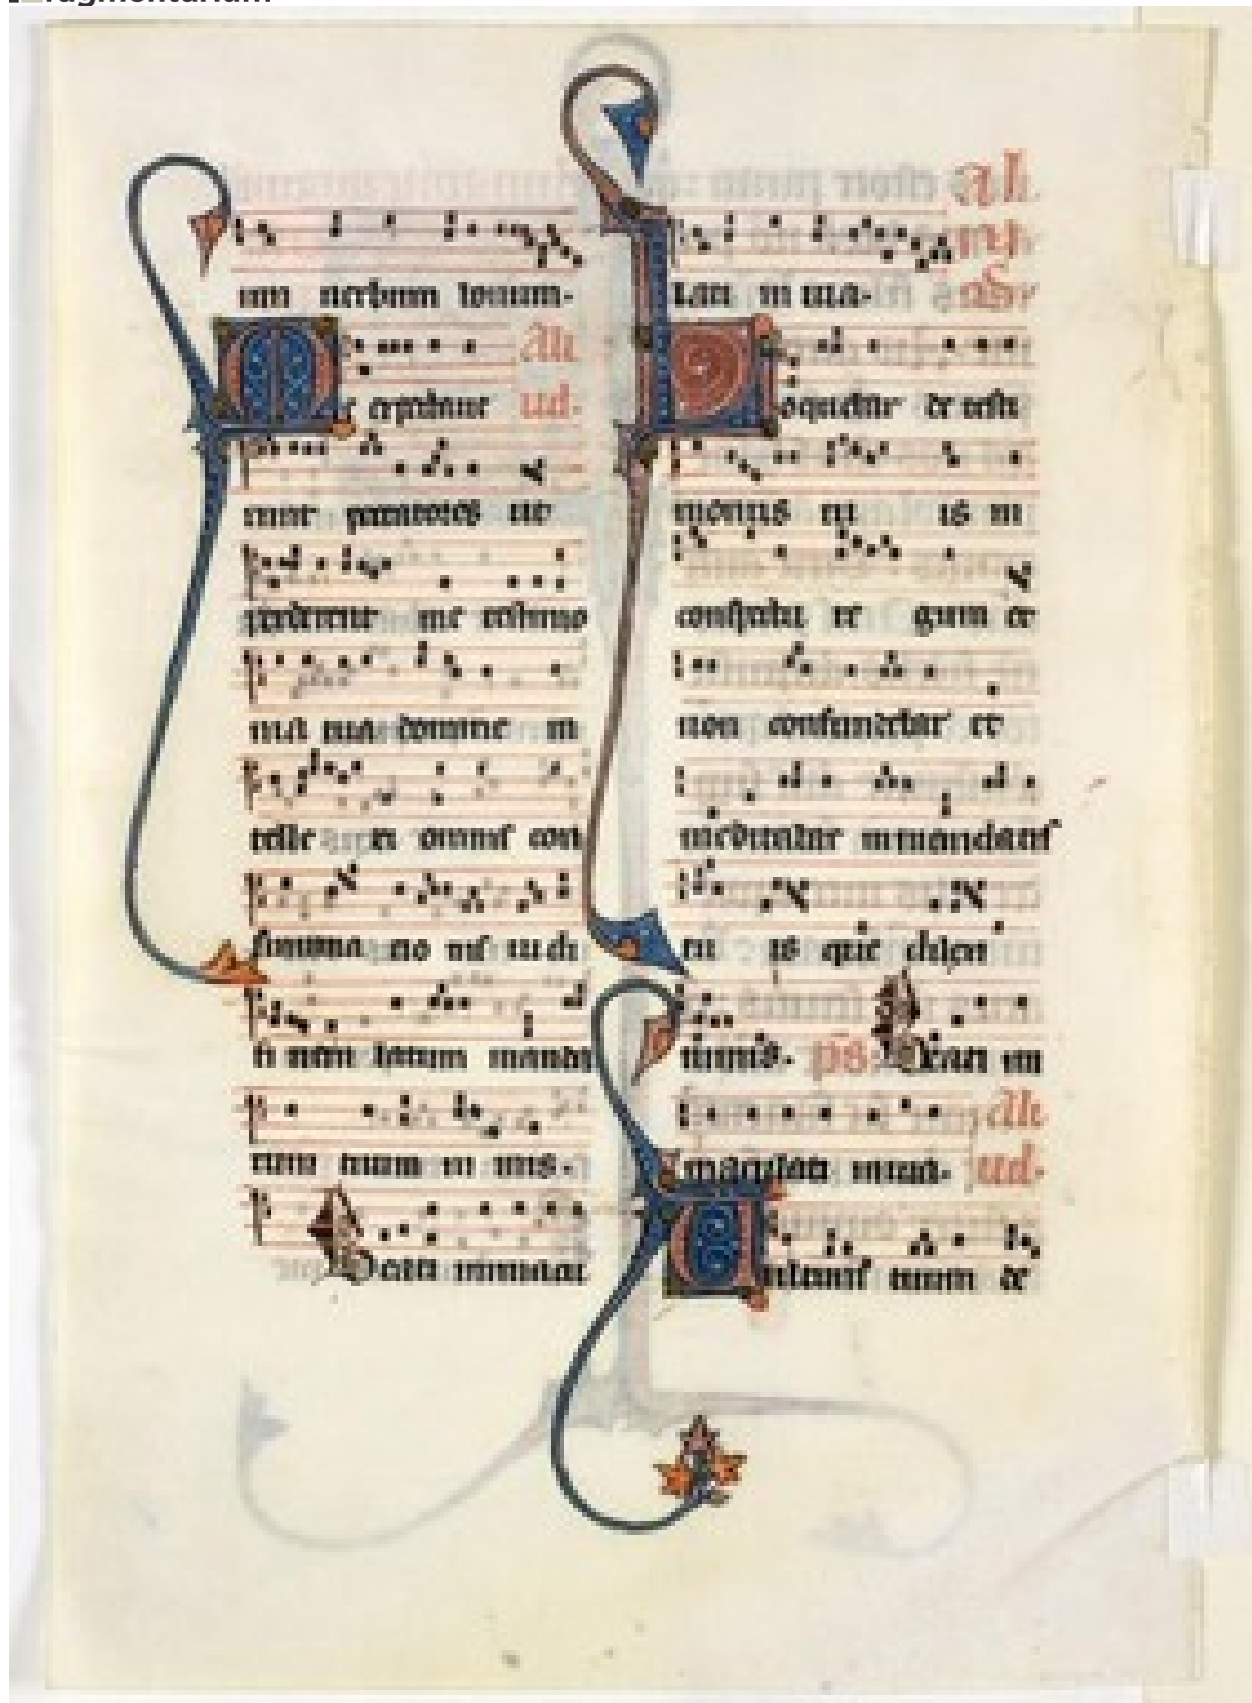 um verbum bonum.
M e expectaue ali
runt peccatores ut ud.
perderent me testimo
nia tua domine in
tellexi omnis con
summa tio nis uidi
fi nem latum manda
tum tuum in mis.
Beati inmacu
lati in uia.
Loquebar de testi
moniis tu is in
conspectu re gum et
non confundebar et
meditabar in mandatis
tu is que dilexi
nimis. ps. Beati im
maculati in uia. ali
ud.
ultum tuum de